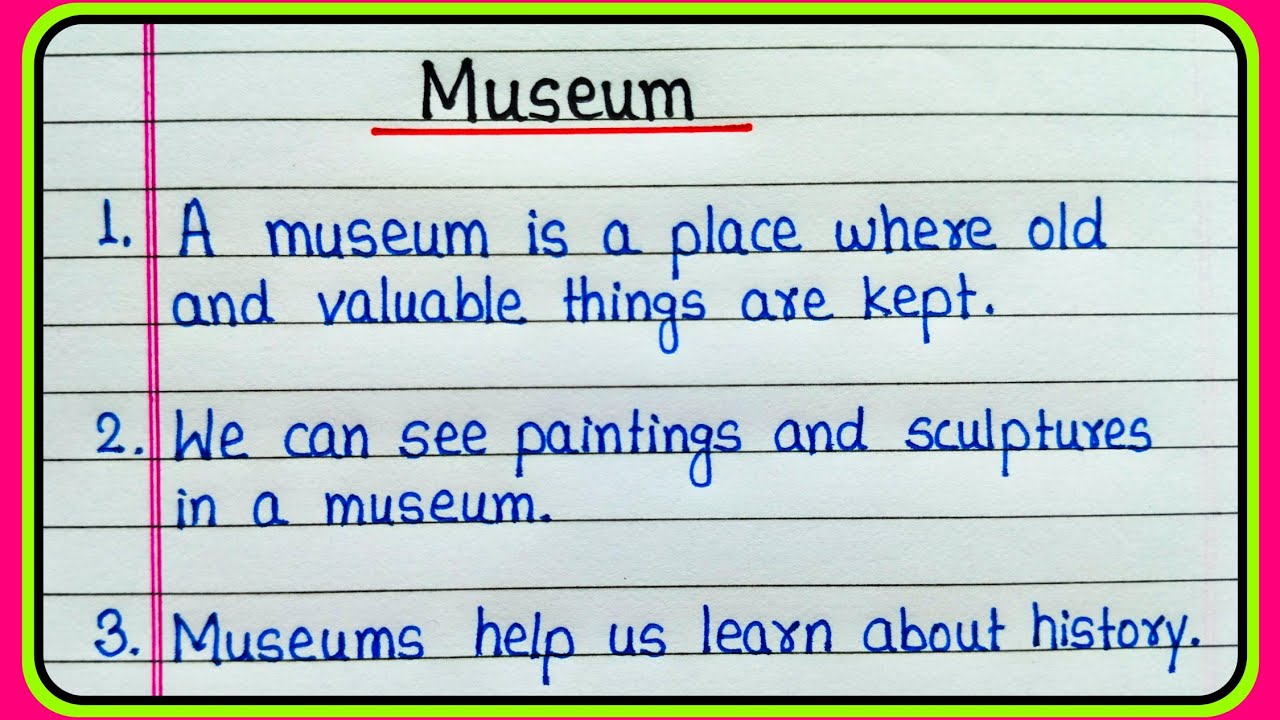 Museum
1. A museum is a place where old
and valuable things are kept.
2. We can see paintings and sculptures
in a museum.
3. Museums help us learn about history.